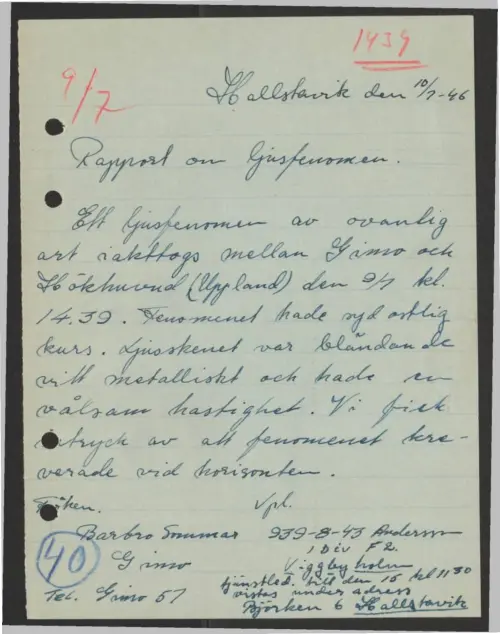 1439
9/7
Hallstavik den 10/7-46
Rapport om ljusfenomen.
Ett ljusfenomen av ovanlig
art iakttogs mellan Gimo och
Hökhuvud (Uppland) den 9/7 kl.
14.39. Fenomenet hade syd ostlig
kurs. Ljusskenet var bländande
vitt metalliskt och hade en
våldsam hastighet. Vi fick
intryck av att fenomenet kre-
verade vid horisonten.
Fröken. Vpl.
Barbro Sommar 939-8-43 Andersson
Gimo 1 Div F 2.
40
Viggbyholm
tjänstled. till den 15 kl 11 30
vistas under adress
Tel. Gimo 57
Björken 6 Hallstavik